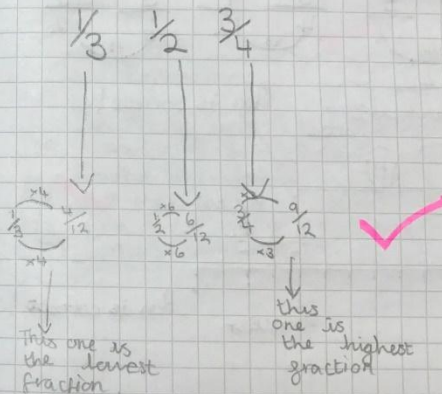 1/3 1/2 3/4
×4 ×6
1/3 4/12 1/2 6/12 3/4 9/12
×4 ×6 ×3
This one is
the lowest
fraction
this
one is
the highest
fraction